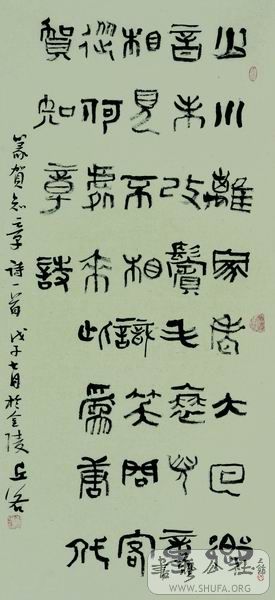 少小離家老大回鄉
音未改鬢毛衰兒童
相見不相識笑問客
從何處來此為唐代
賀知章詩
篆賀知章詩一首戊子七月於金陵
WWW.SHUFA.ORG